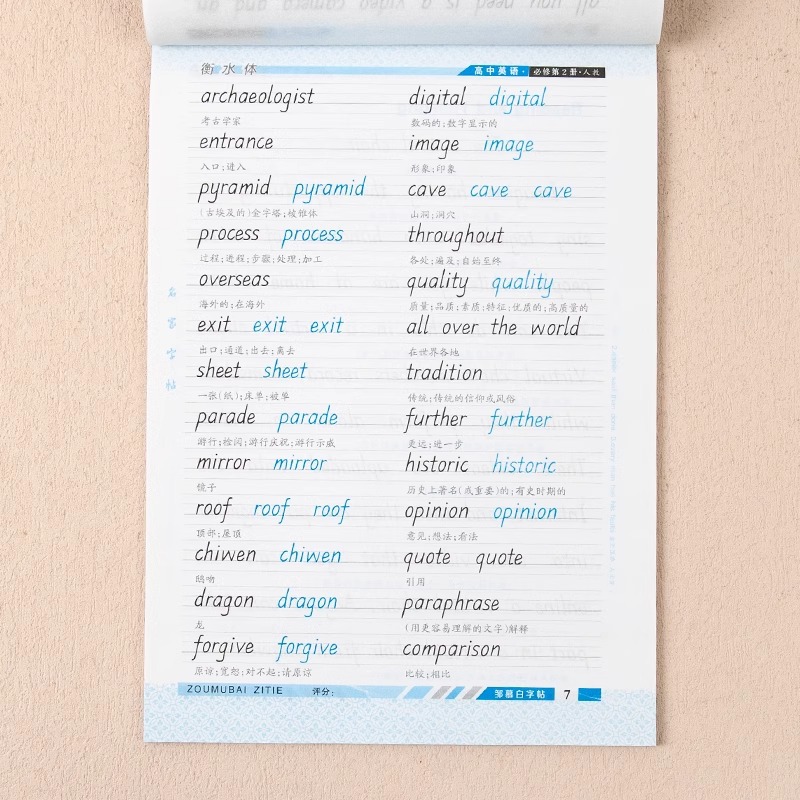 all you need is a video camera and an
衡水体
高中英语·必修第2册·人教
archaeologist
考古学家
entrance
入口;进入
pyramid pyramid
(古埃及的)金字塔;棱锥体
process process
过程;进程;步骤;处理;加工
overseas
海外的;在海外
exit exit exit
出口;通道;出去;离去
sheet sheet
一张(纸);床单;被单
parade parade
游行;检阅;游行庆祝;游行示威
mirror mirror
镜子
roof roof roof
顶部;屋顶
chiwen chiwen
鸱吻
dragon dragon
龙
forgive forgive
原谅;宽恕;对不起;请原谅
digital digital
数码的;数字显示的
image image
形象;印象
cave cave cave
山洞;洞穴
throughout
各处;遍及;自始至终
quality quality
质量;品质;素质;特征;优质的;高质量的
all over the world
在世界各地
tradition
传统;传统的信仰或风俗
further further
更远;进一步
historic historic
历史上著名(或重要)的;有史时期的
opinion opinion
意见;想法;看法
quote quote
引用
paraphrase
(用更容易理解的文字)解释
comparison
比较;相比
名家字帖
ZOUMUBAI ZITIE 评分:
邹慕白字帖 7